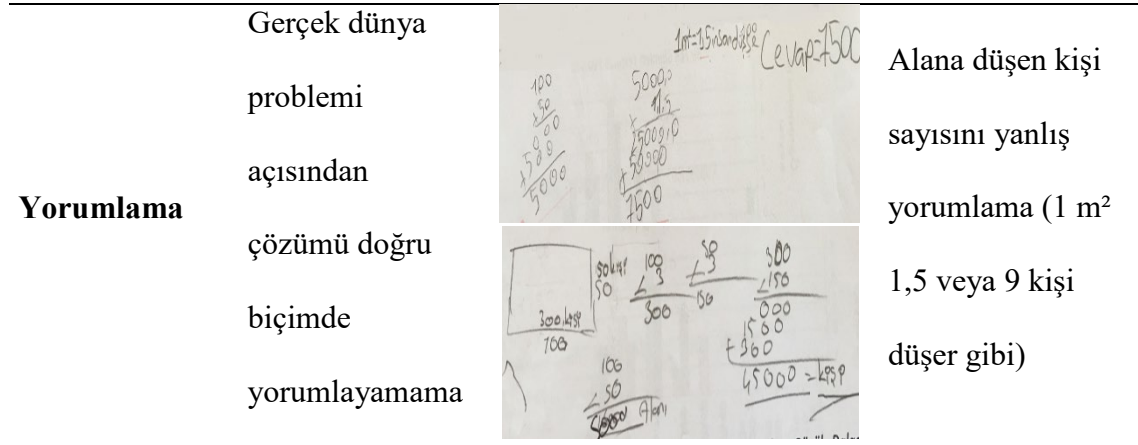 Yorumlama
Gerçek dünya
problemi
açısından
çözümü doğru
biçimde
yorumlayamama
1m²=1,5 insan düşe
Cevap=7500
100
x50
000
+500
5000
5000,0
x 1,5
25000,0
+50000
7500
50 kişi
50
300 kişi
100
100
x 3
300
50
x 3
150
300
x150
000
1500
+300
45000 = kişi
100
x 50
5000 Alanı
Alana düşen kişi
sayısını yanlış
yorumlama (1 m²
1,5 veya 9 kişi
düşer gibi)